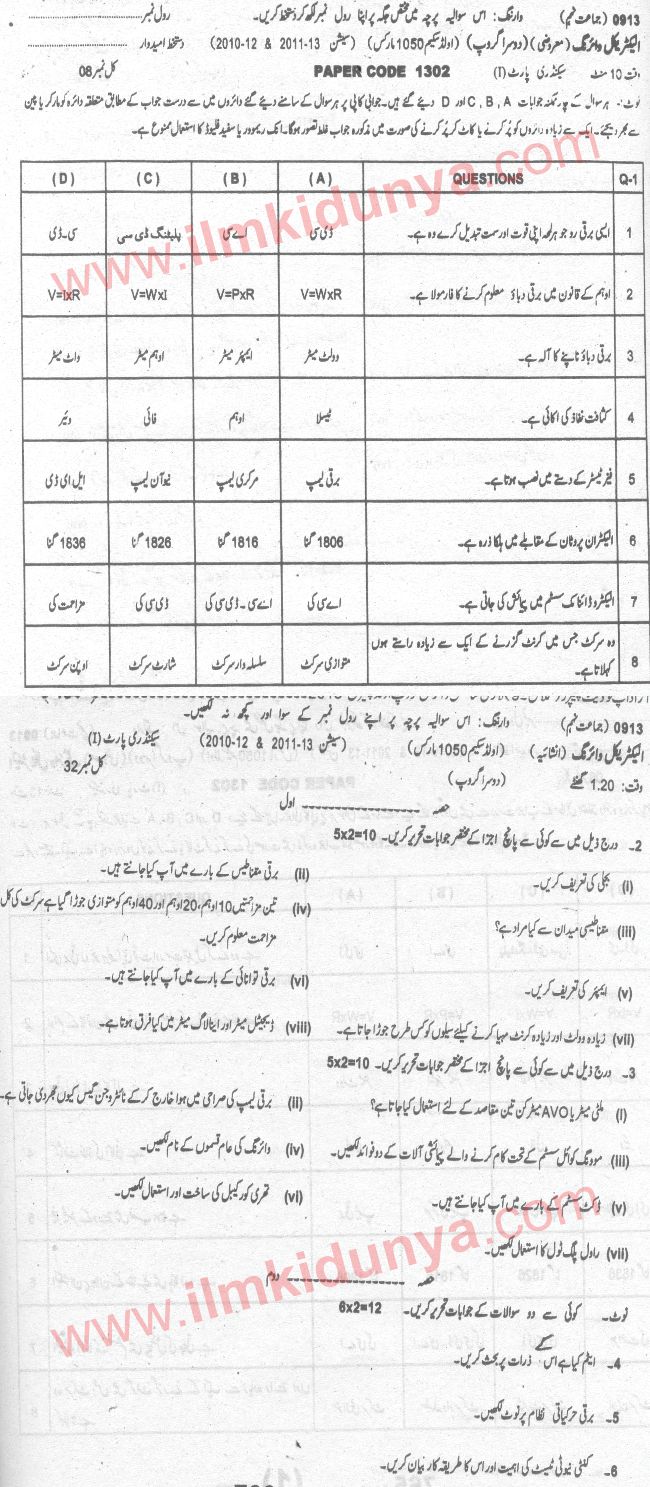 0913 (جماعت نہم) وارننگ: اس سوالیہ پرچہ میں مختص جگہ پر اپنا رول نمبر لکھ کر دستخط کریں۔ رول نمبر
الیکٹریکل وائرنگ (معروضی) (دوسرا گروپ) (اولڈ سکیم 1050 مارکس) (سیشن 2011-13 & 2010-12) دستخط امیدوار
وقت 10 منٹ سیکنڈری پارٹ (I) PAPER CODE 1302 کل نمبر 08
نوٹ:- ہر سوال کے چار ممکنہ جوابات A ,B ,C اور D دیئے گئے ہیں۔ جوابی کاپی پر ہر سوال کے سامنے دیئے گئے دائروں میں سے درست جواب کے مطابق متعلقہ دائرہ کو مارکر یا پین
سے بھر دیجئے۔ ایک سے زیادہ دائروں کو پُر کرنے یا کاٹ کر پُر کرنے کی صورت میں مذکورہ جواب غلط تصور ہوگا۔ انک ریموور یا سفید فلیوڈ کا استعمال ممنوع ہے۔
Q-1 QUESTIONS (A) (B) (C) (D)
1 ایسی برقی رو جو ہر لمحہ اپنی قوت اور سمت تبدیل کرے وہ ہے۔ ڈی سی اے سی پلیٹنگ ڈی سی سی۔ ڈی
2 اوہم کے قانون میں برقی دباؤ معلوم کرنے کا فارمولا ہے۔ V=WxR V=PxR V=WxI V=IxR
3 برقی دباؤ ناپنے کا آلہ ہے۔ وولٹ میٹر ایمپئر میٹر اوہم میٹر واٹ میٹر
4 کثافت نفاذ کی اکائی ہے۔ ٹیسلا اوہم فائی ویبر
5 فیز ٹیسٹر کے دستے میں نصب ہوتا ہے۔ برقی لیمپ مرکری لیمپ نیوآن لیمپ ایل ای ڈی
6 الیکٹران پروٹان کے مقابلے میں ہلکا ذرہ ہے۔ 1806 گنا 1816 گنا 1826 گنا 1836 گنا
7 الیکٹروڈائنامک سسٹم میں پیمائش کی جاتی ہے۔ اے سی کی اے سی۔ ڈی سی کی ڈی سی کی مزاحمت کی
8 وہ سرکٹ جس میں کرنٹ گزرنے کے ایک سے زیادہ راستے ہوں کہلاتا ہے۔ متوازی سرکٹ سلسلہ وار سرکٹ شارٹ سرکٹ اوپن سرکٹ
0913 (جماعت نہم) وارننگ: اس سوالیہ پرچہ پر اپنے رول نمبر کے سوا اور کچھ نہ لکھیں۔
الیکٹریکل وائرنگ (انشائیہ) (اولڈ سکیم 1050 مارکس) (سیشن 2011-13 & 2010-12) سیکنڈری پارٹ (I)
وقت: 1.20 گھنٹے (دوسرا گروپ) کل نمبر 32
حصہ اول
2۔ درج ذیل میں سے کوئی سے پانچ اجزا کے مختصر جوابات تحریر کریں۔ 5x2=10
(i) بجلی کی تعریف کریں۔ (ii) برقی مقناطیس کے بارے میں آپ کیا جانتے ہیں۔
(iii) مقناطیسی میدان سے کیا مراد ہے؟ (iv) تین مزاحمتیں 10 اوہم، 20 اوہم اور 40 اوہم کو متوازی جوڑا گیا ہے سرکٹ کی کل
مزاحمت معلوم کریں۔
(v) ایمپئر کی تعریف کریں۔ (vi) برقی توانائی کے بارے میں آپ کیا جانتے ہیں۔
(vii) زیادہ وولٹ اور زیادہ کرنٹ مہیا کرنے کیلئے سیلوں کو کس طرح جوڑا جاتا ہے۔ (viii) ڈیجیٹل میٹر اور اینالاگ میٹر میں کیا فرق ہوتا ہے۔
3۔ درج ذیل میں سے کوئی سے پانچ اجزا کے مختصر جوابات تحریر کریں۔ 5x2=10
(i) ملٹی میٹر یا AVO میٹر کن تین مقاصد کے لئے استعمال کیا جاتا ہے؟ (ii) برقی لیمپ کی صراحی میں ہوا خارج کر کے نائٹروجن گیس کیوں بھر دی جاتی ہے۔
(iii) موونگ کوائل سسٹم کے تحت کام کرنے والے پیمائشی آلات کے دو فوائد لکھیں۔ (iv) وائرنگ کی عام قسموں کے نام لکھیں۔
(v) ڈکٹ سسٹم کے بارے میں آپ کیا جانتے ہیں۔ (vi) تھری کور کیبل کی ساخت اور استعمال لکھیں۔
(vii) راول پلگ ٹول کا استعمال لکھیں۔
حصہ دوم
نوٹ۔ کوئی سے دو سوالات کے جوابات تحریر کریں۔ 6x2=12
4۔ ایٹم کیا ہے اس کے ذرات پر بحث کریں۔
5۔ برقی حرکیاتی نظام پر نوٹ لکھیں۔
6۔ کنٹی نیوٹی ٹیسٹ کی اہمیت اور اس کا طریقہ کار بیان کریں۔
www.ilmkidunya.com
www.ilmkidunya.com